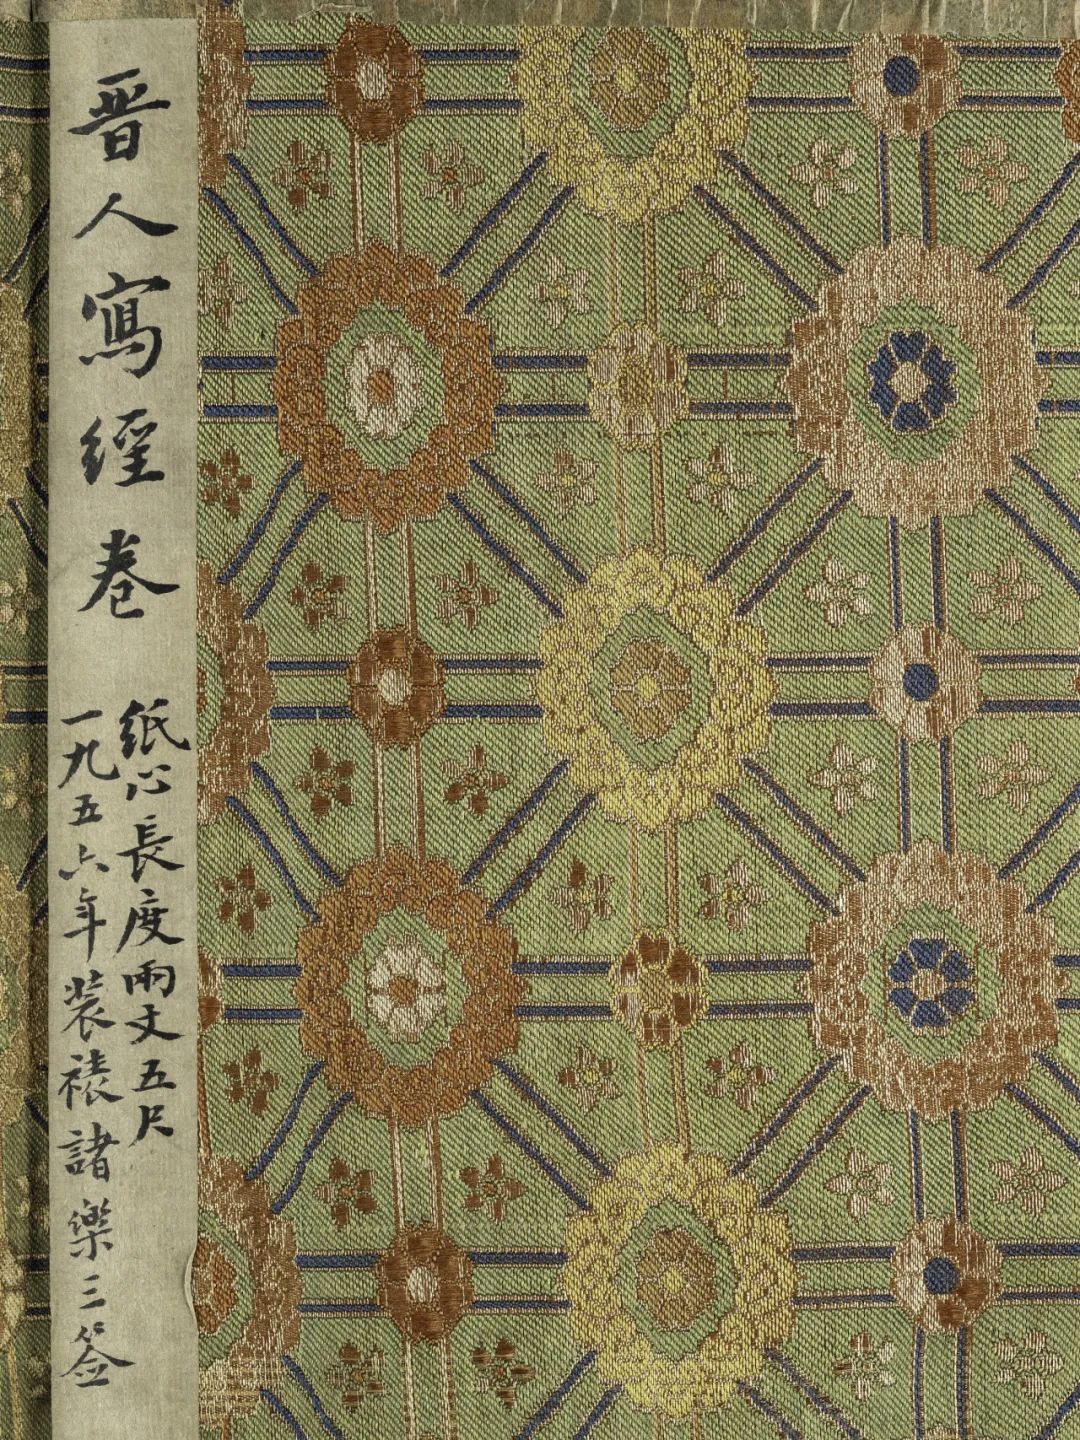 晋人寫經卷
紙心長度兩丈五尺
一九五六年装裱諸樂三簽